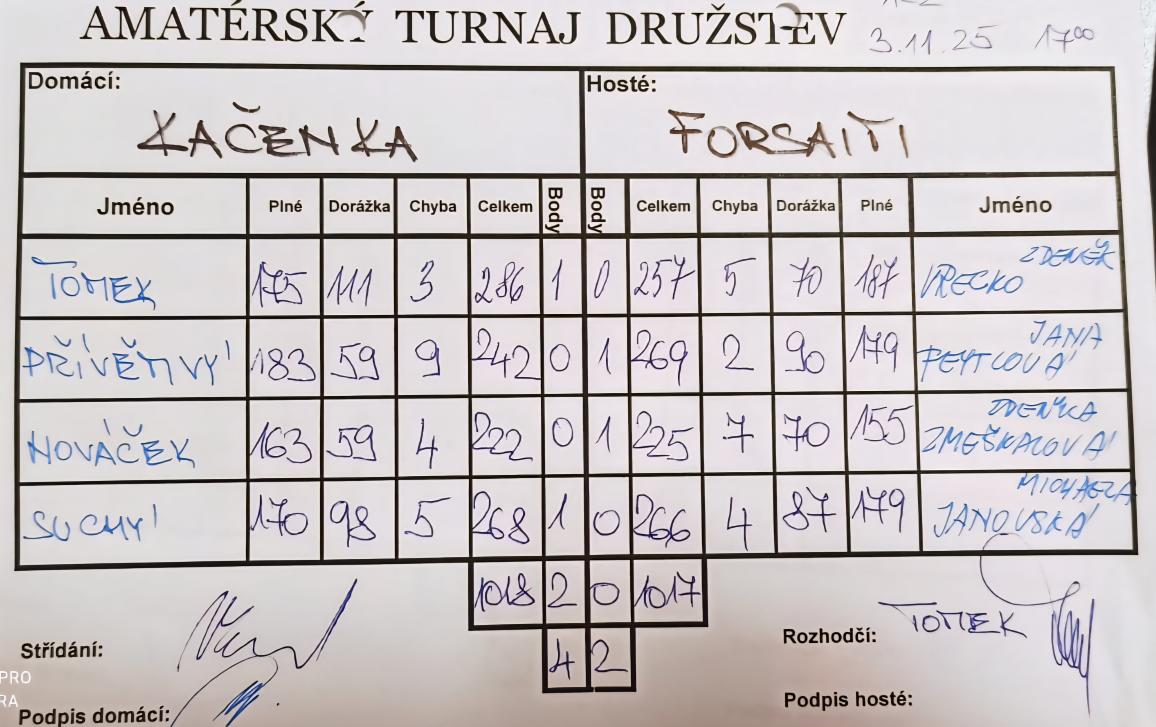 AMATÉRSKÝ TURNAJ DRUŽSTEV
3.11.25 17⁰⁰
Domácí: Hosté:
KAČENKA FORSAITI
Jméno Plné Dorážka Chyba Celkem Body Body Celkem Chyba Dorážka Plné Jméno
TOMEK 175 111 3 286 1 0 257 5 70 187 VRECKO ZDENĚK
PŘÍVĚTIVÝ 183 59 9 242 0 1 269 2 90 179 PEYTLOVÁ JANA
NOVÁČEK 163 59 4 222 0 1 225 7 70 155 ZMEŠKALOVÁ ZDEŇKA
SUCHÝ 170 98 5 268 1 0 266 4 87 179 JANOVSKÁ MICHAELA
1018 2 0 1017
4 2
Střídání: Rozhodčí: TOMEK
Podpis domácí: Podpis hosté:
PRO
RA